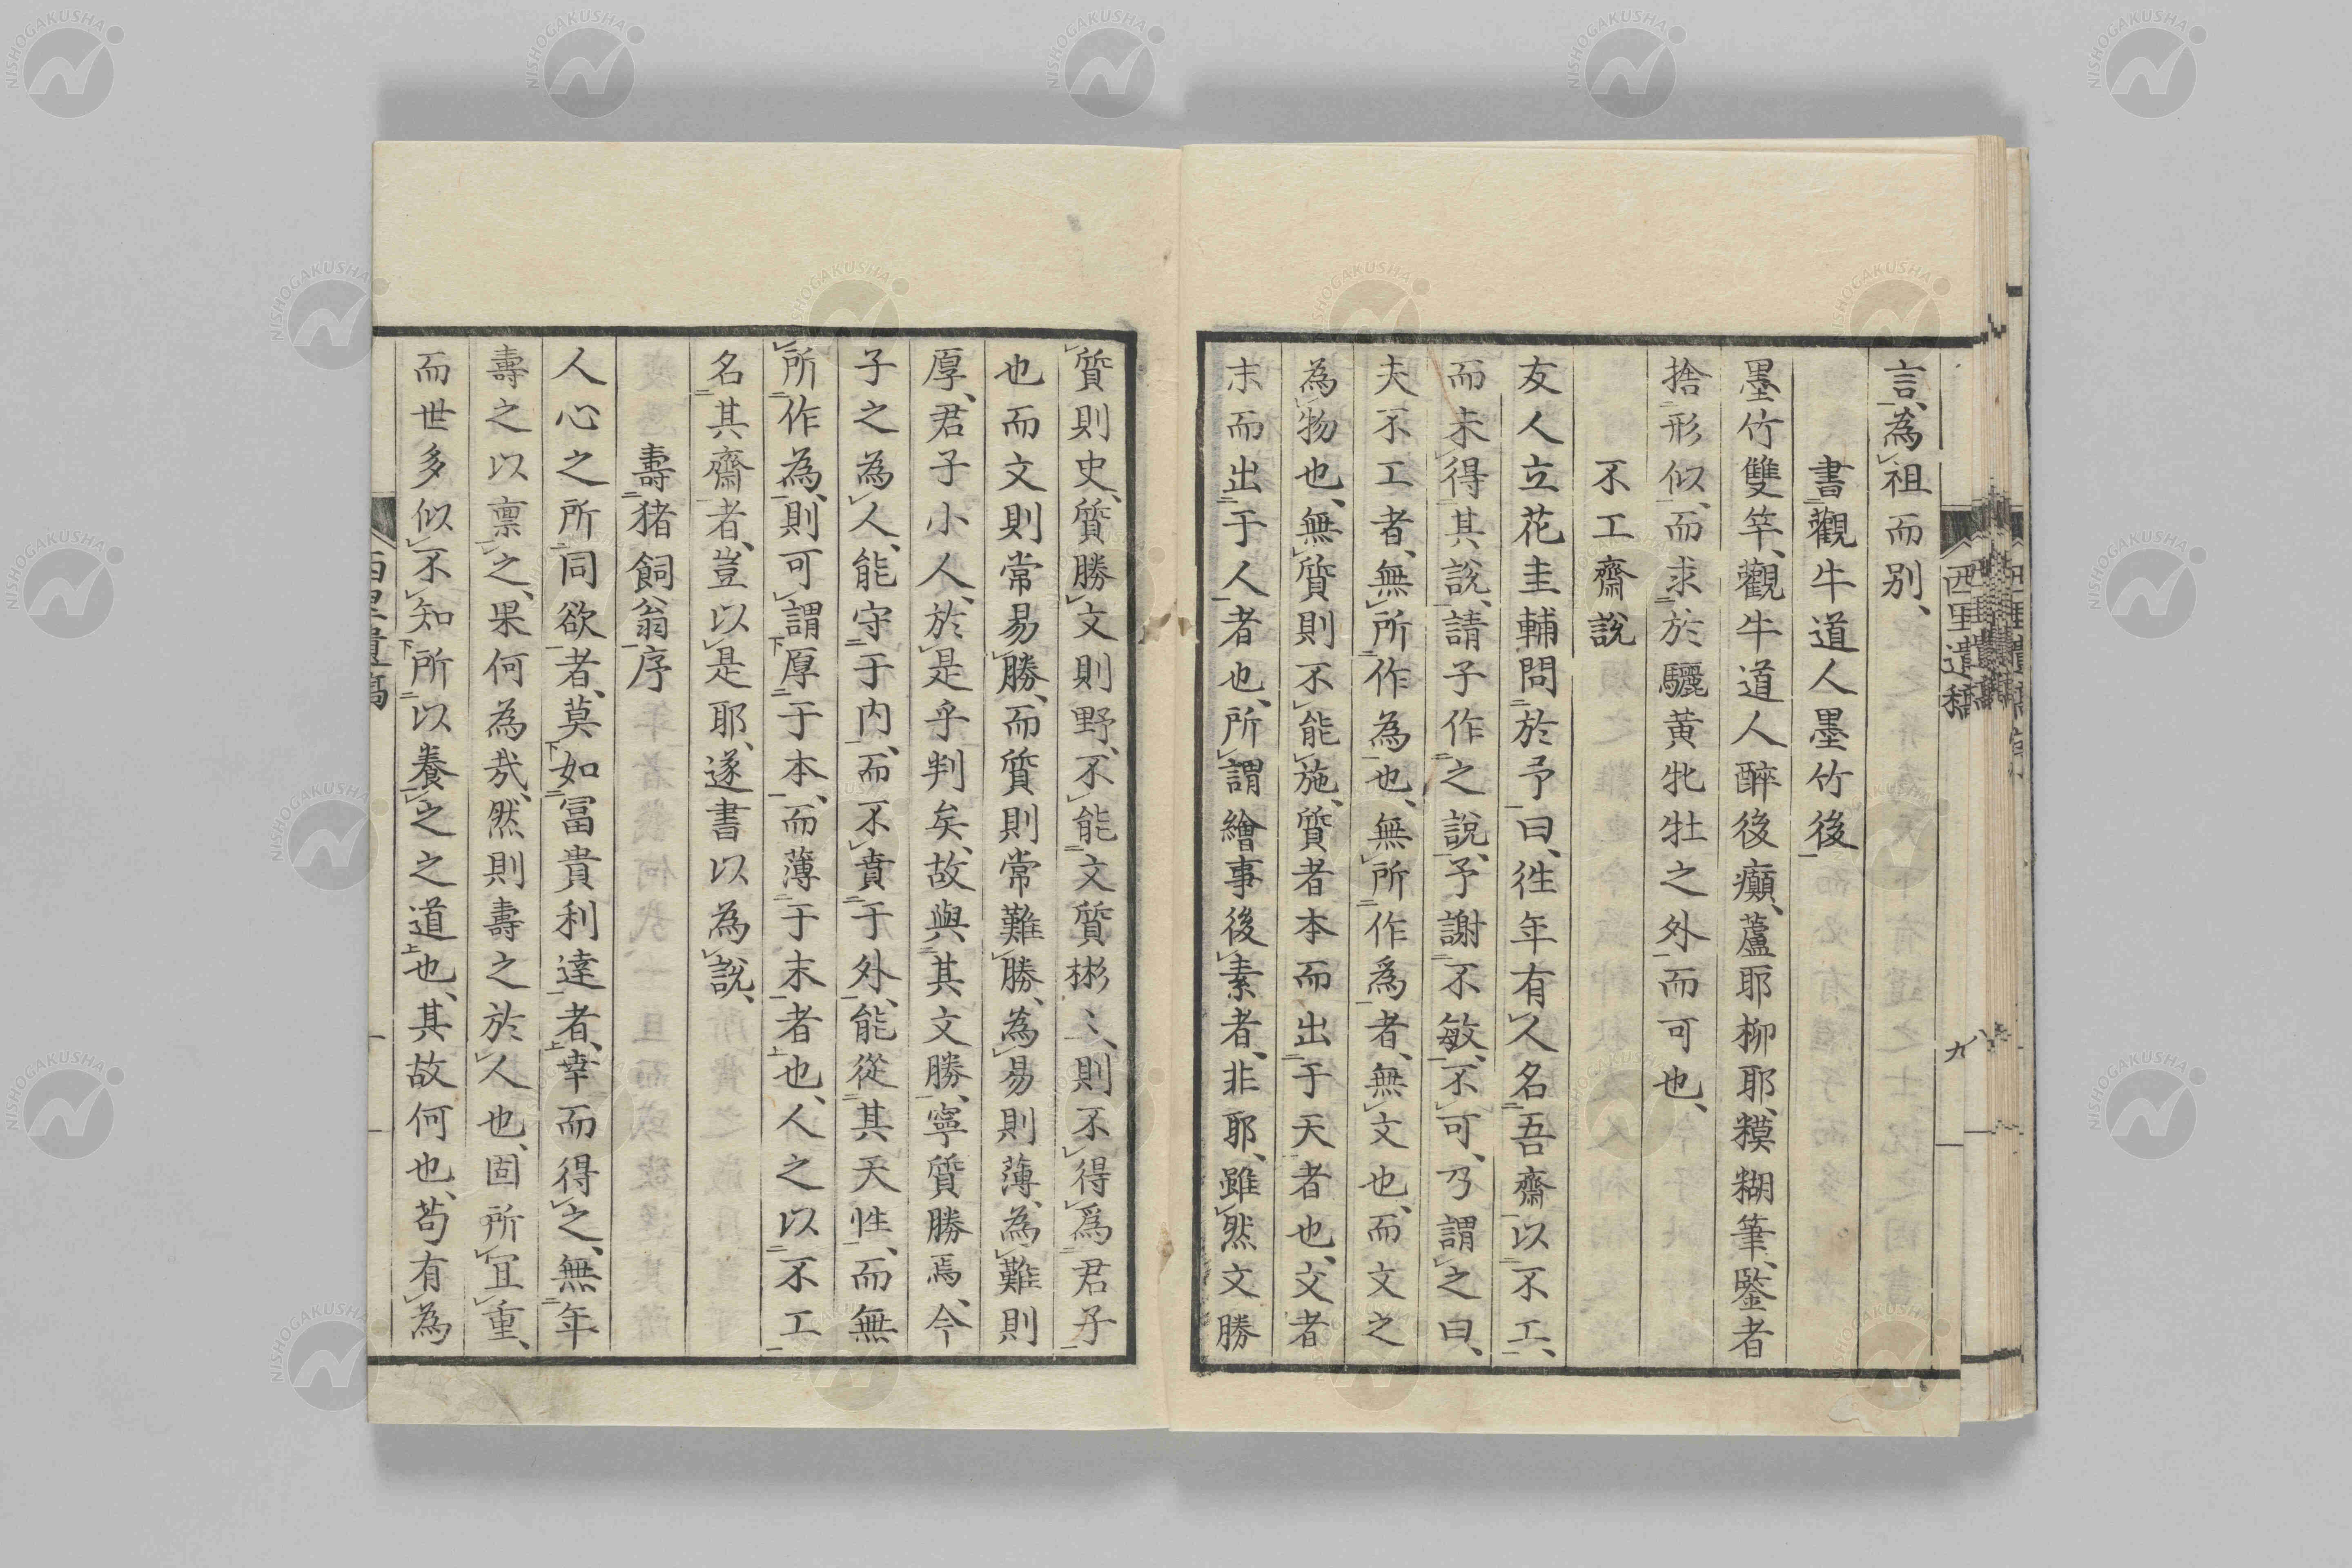 言、為祖而別、
書觀牛道人墨竹後
墨竹雙竿、觀牛道人醉後癲、蘆耶柳耶、糢糊筆、鑒者
捨形似、而求於驪黄牝牡之外而可也、
不工齋説
友人立花圭輔問於予曰、徃年有人名吾齋以不工、
而未得其説、請子作之説、予謝不敏、不可、乃謂之曰、
夫不工者、無所作為也、無所作爲者、無文也、而文之
為物也、無質則不能施、質者本而出于天者也、文者
末而出于人者也、所謂繪事後素者、非耶、雖然文勝
質則史、質勝文則野、不能文質彬〻、則不得爲君子
也而文則常易勝、而質則常難勝、為易則薄、為難則
厚、君子小人、於是乎判矣、故與其文勝、寧質勝焉、今
子之為人、能守于内、而不賁于外、能從其天性、而無
所作為、則可謂厚于本、而薄于末者也、人之以不工
名其齋者、豈以是耶、遂書以為説、
壽猪飼翁序
人心之所同欲者、莫如冨貴利達者、幸而得之、無年
壽之以稟之、果何為哉、然則壽之於人也、固所宜重、
而世多似不知所以養之之道也、其故何也、苟有為
西里遺稿
九
NISHOGAKUSHA